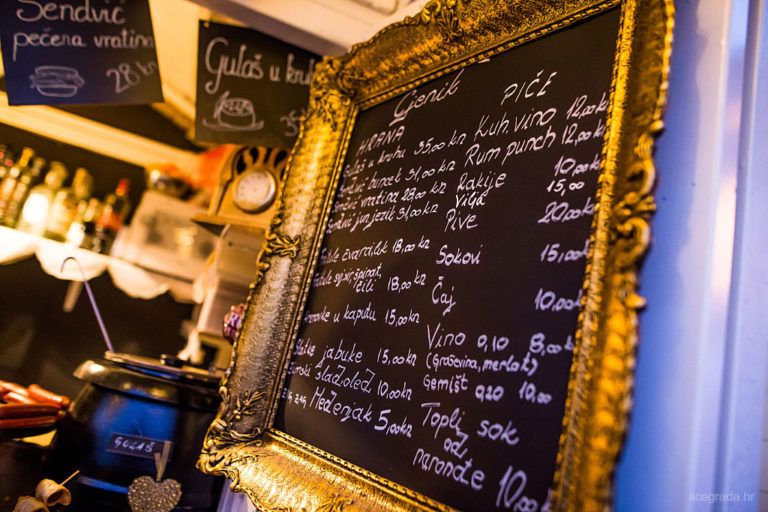 Sendvič
pečena vratina
28kn
Gulaš u kruhu
35
Cjenik
HRANA
Gulaš u kruhu 35,00 kn
Sendvič buncek 31,00 kn
Sendvič vratina 28,00 kn
Sendvič junjezik 31,00 kn
čvaraiLek 18,00 kn
sir, špinat,
čili 18,00 kn
u kaputu 15,00kn
Slatke jabuke 15,00 kn
Zimski sladoled 10,00kn
Medenjak 5,00kn
PIĆE
Kuh vino 12,00kn
Rum punch 12,00kn
Rakije 10,00kn
Vilja 15,00
Pive 20,00kn
Sokovi 15,00kn
Čaj 10,00kn
Vino 0,10 8,00kn
(Graševina, merlot)
Gemišt 0,20 10,00
Topli sok
od
naranđe 10,00
GULAŠ
licegrada.hr